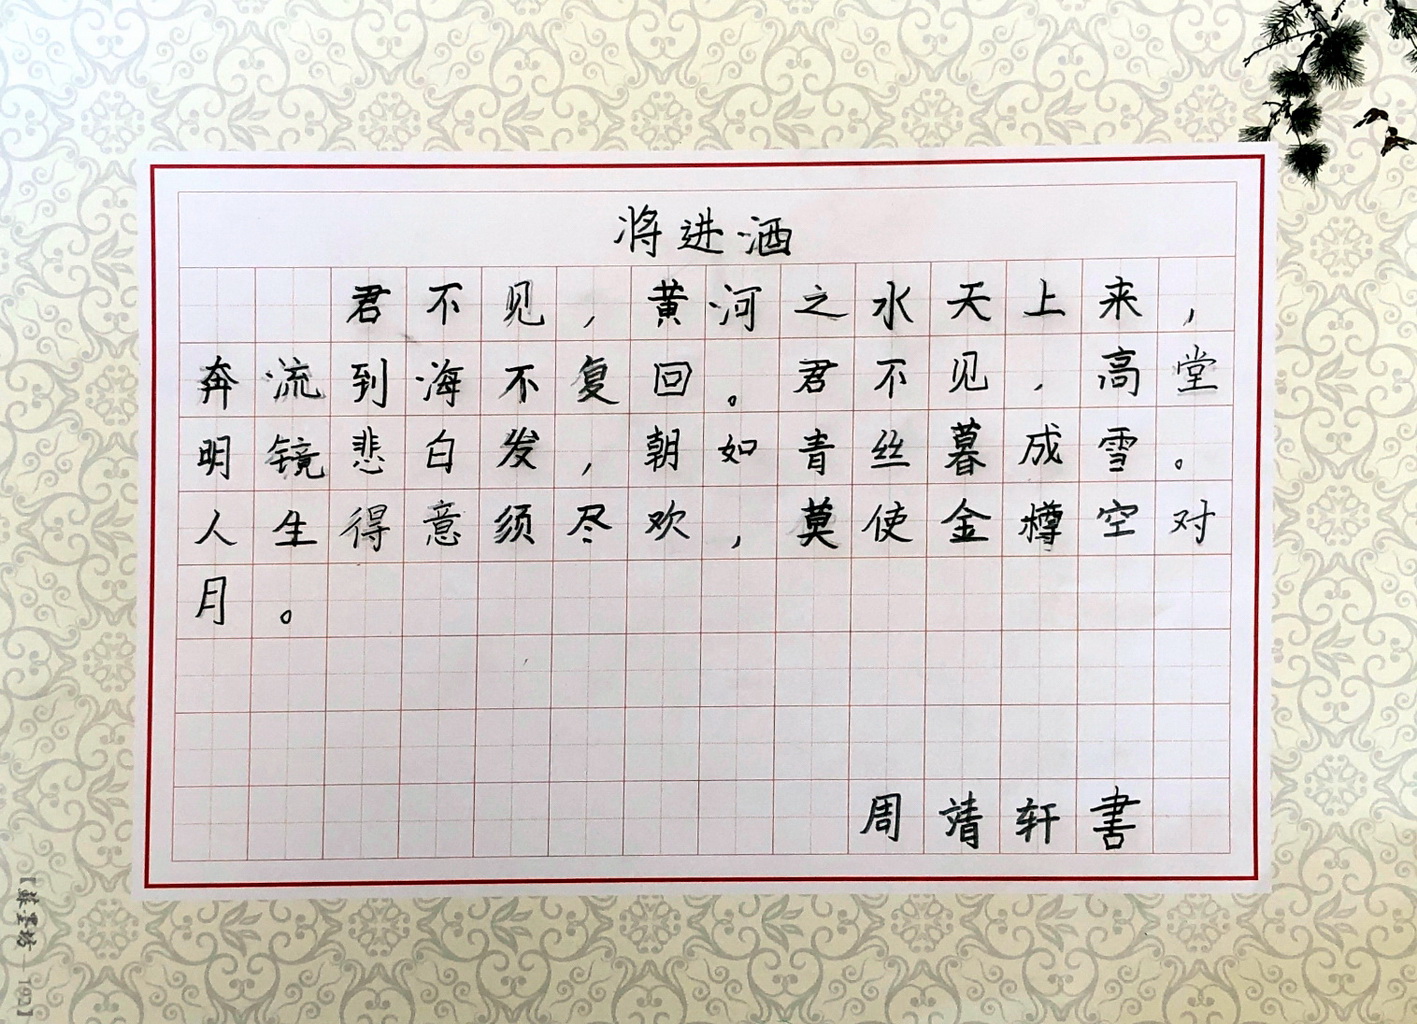 将进酒
君不见，黄河之水天上来，
奔流到海不复回。君不见，高堂
明镜悲白发，朝如青丝暮成雪。
人生得意须尽欢，莫使金樽空对
月。
周靖轩書
【蘇墨坊—193】